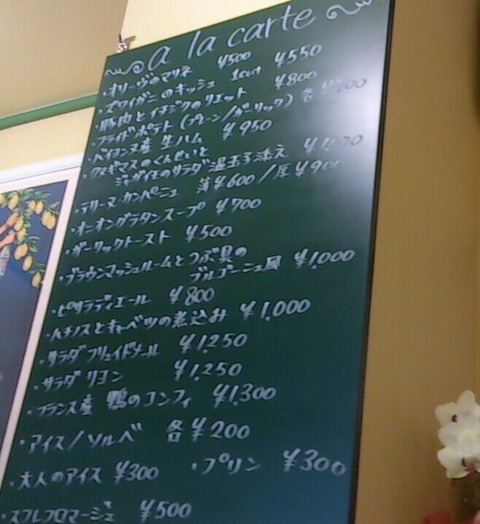 a la carte
・オリーヴのマリネ ¥500
・ズワイガニのキッシュ 1cut ¥550
・豚肉とイチジクのリエット ¥800
・フライドポテト(プレーン/ガーリック) 各
・バイヨンヌ産 生ハム ¥950
・クヌギマスのくんせいと
ジャガイモのサラダ 温玉子添え
・テリーヌ カンパーニュ 薄¥600/厚¥900
・オニオングラタンスープ ¥700
・ガーリックトースト ¥500
・ブラウンマッシュルームとつぶ貝の
ブルゴーニュ風 ¥1,000
・ピサラディエール ¥800
・ハチノスとキャベツの煮込み ¥1,000
・サラダ フリュイドメール ¥1,250
・サラダ リヨン ¥1,250
・フランス産 鴨のコンフィ ¥1,300
・アイス/ソルベ 各¥200
・大人のアイス ¥300 ・プリン ¥300
・スフレフロマージュ ¥500